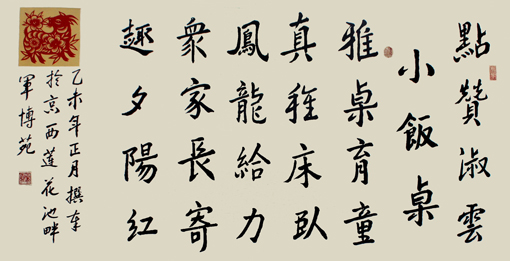 點贊淑雲
小飯桌
雅桌育童
真稚床臥
鳳龍給力
衆家長寄
趣夕陽紅
乙未年正月撰車
於京西蓮花池畔
軍博苑